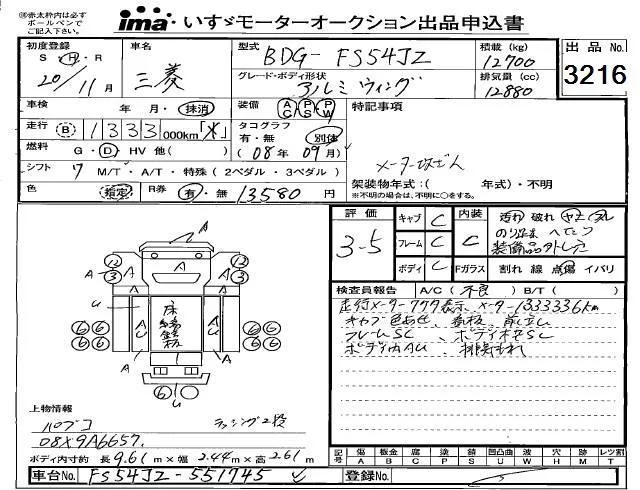 ※赤太枠内は必ず
ボールペンで
ご記入下さい。
ima いすゞモーターオークション出品申込書
初度登録 車名 型式 BDG-FS54JZ 積載(kg) 12700 出品No
S・H・R 20/11月 三菱 グレード・ボディ形状 アルミウィング 排気量(cc) 12880 3216
車検 年 月・抹消 装備 AC PS PW 特記事項
走行 B 1333 000km タコグラフ 有・無 別体
燃料 G・D・HV 他( ) (08年09月)
シフト 7 M/T・A/T・特殊(2ペダル・3ペダル) 架装物年式:( 年式)・不明
色 指定 R券 有・無 13580円 ※不明の場合は、不明に○をする。
評価 3-5
キャブ C 内装 C
フレーム C
ボディ C Fガラス
汚れ 破れ ヤニ
割れ 線 点傷 イバリ
検査員報告 A/C(不良) B/T( )
走行メーター777表示、メーター1333336km
キャブ色あせ、看板、
フレームSC、
ボディ内AU、
A A U A A A A U A A U
12 3 12 3
6 6 6 6 6 6 6 6 6
床
鉄板
上物情報
パブコ ラッシング2段
08X9A6657.
ボディ内寸約 長9.61m×幅2.44m×高2.61m
記号 傷 A 板金 B 腐 C 塗 P 錆 S 凹凸曲 U 波 W 穴 H 跡 M レツ割 T
車台No. FS54JZ-551745 登録No.